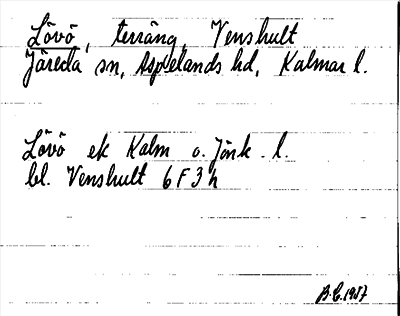 Lövö, terräng, Venshult
Järeda sn, Aspelands hd, Kalmar l.
Lövö ek Kalm o. Jönk. l.
bl. Venshult 6 F 3 h
B.E. 1957